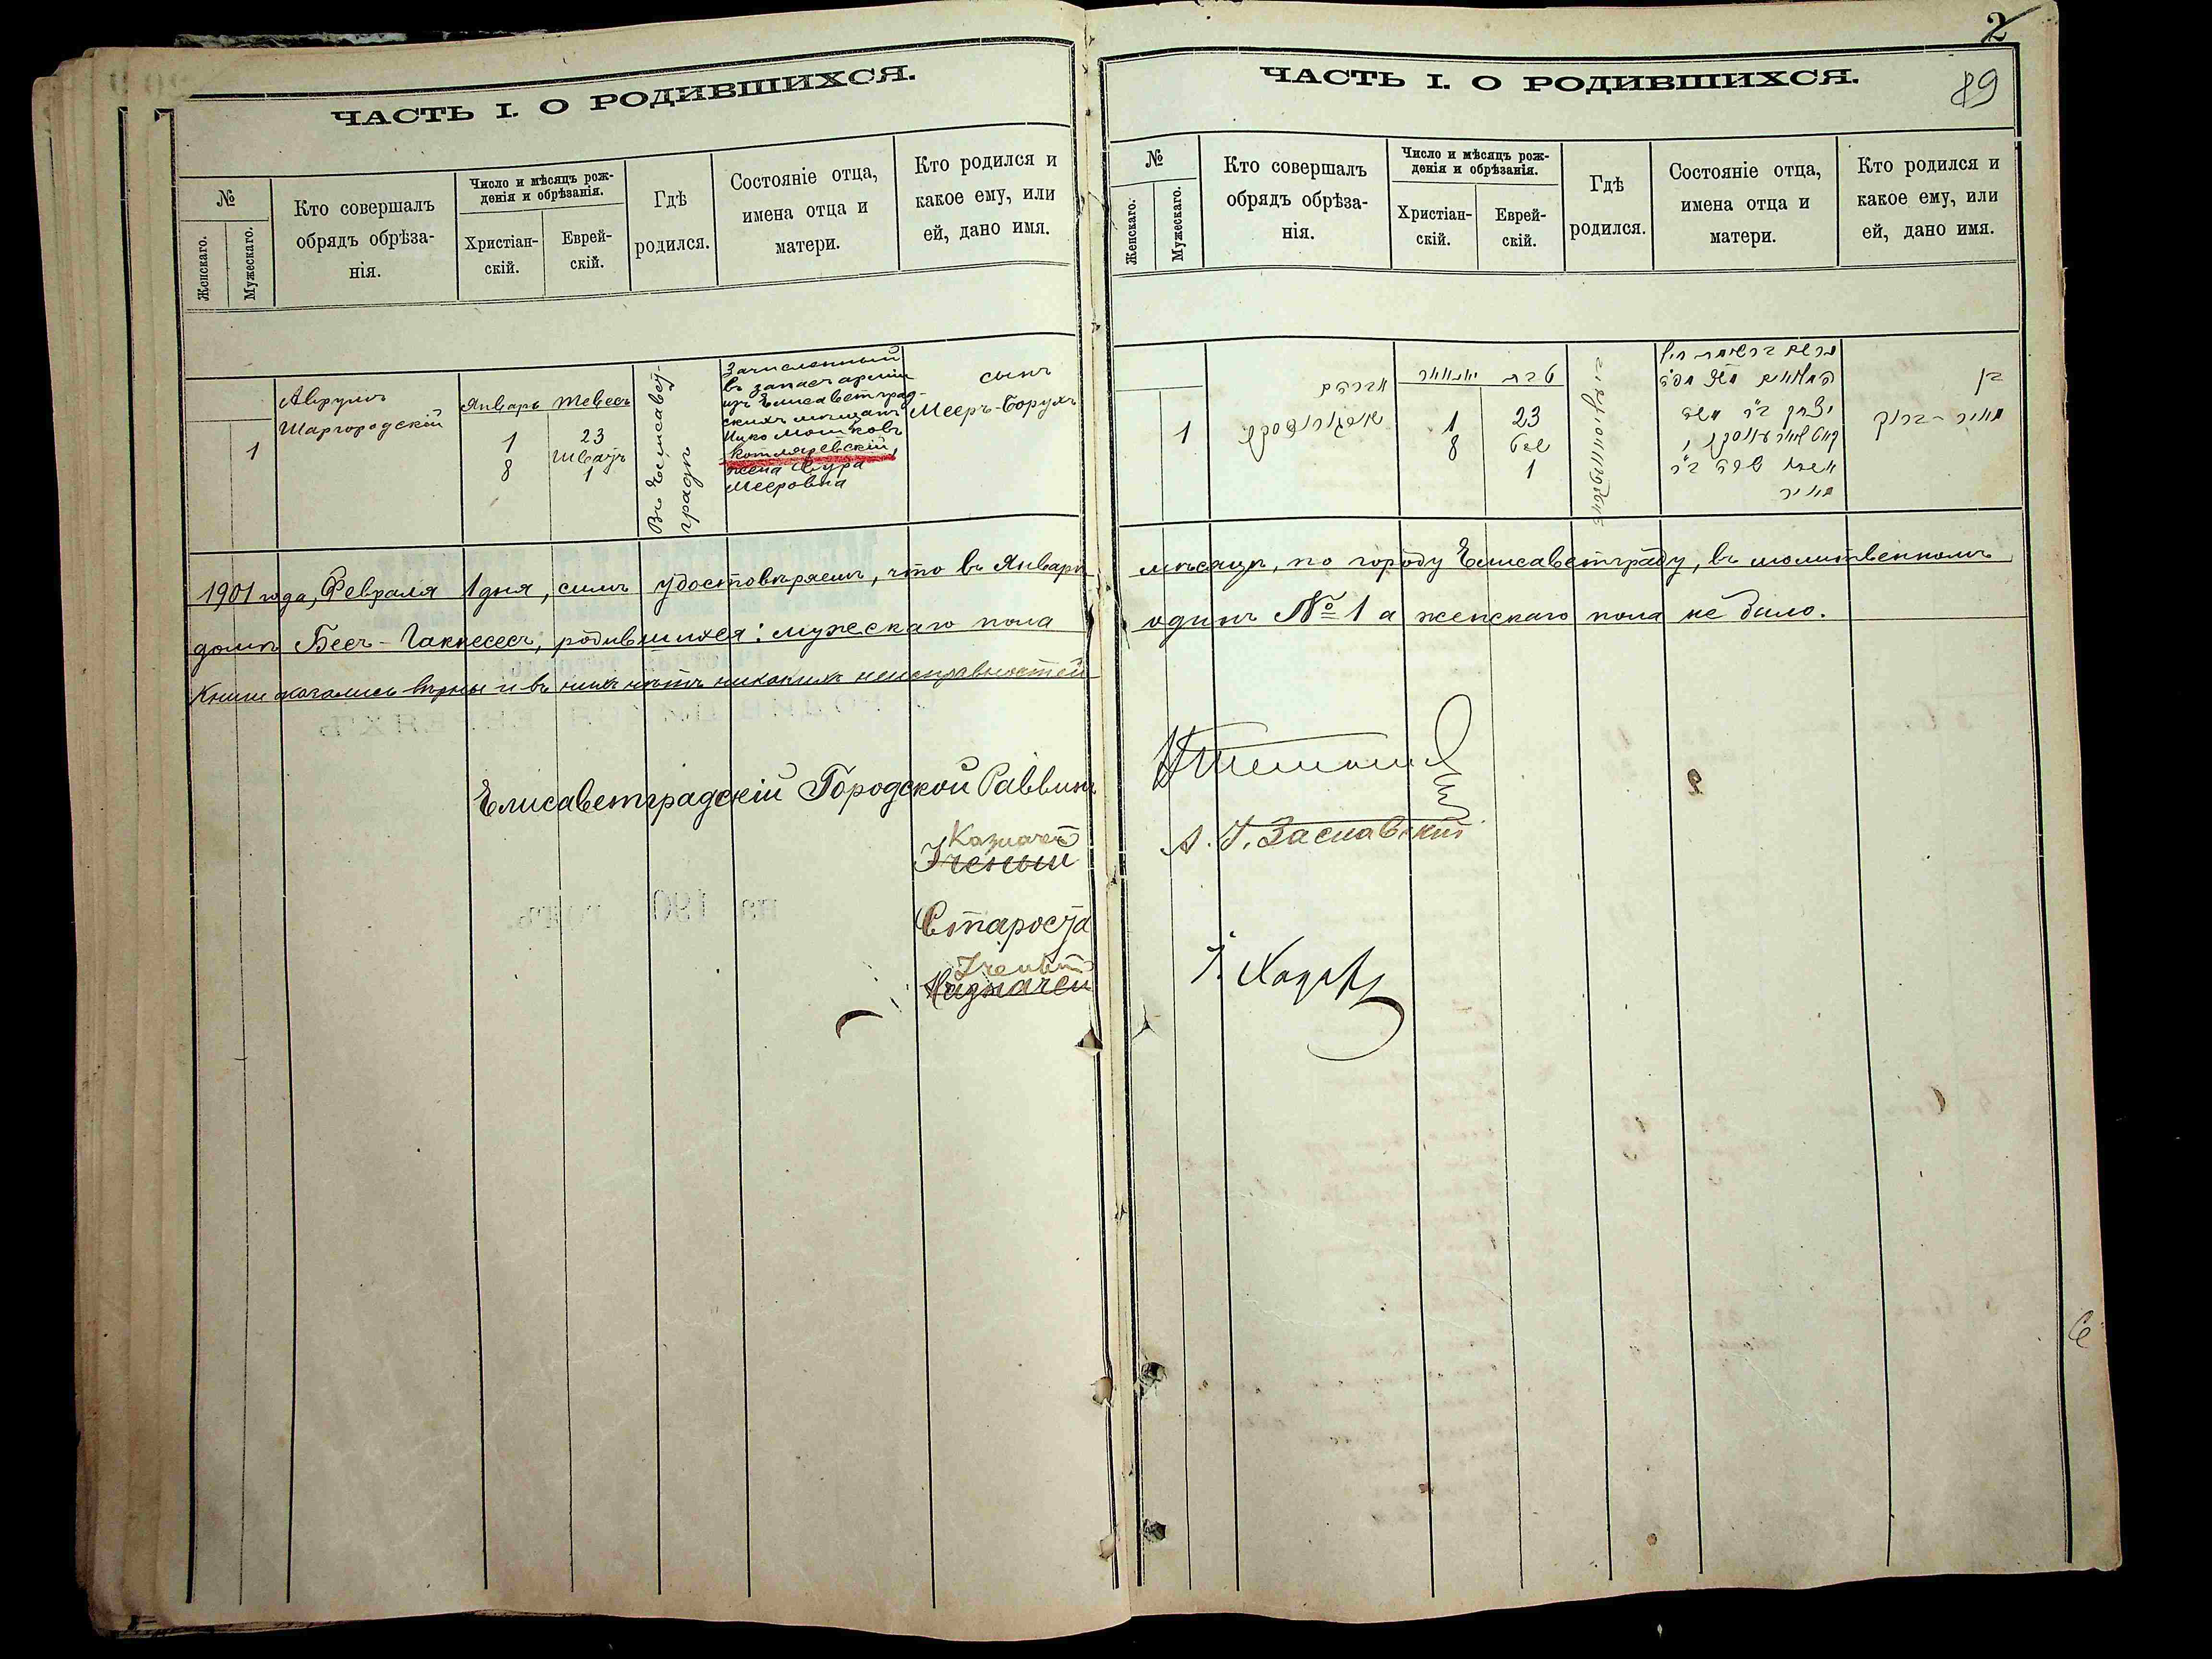 ЧАСТЬ I. О РОДИВШИХСЯ.
№
Женскаго.
Мужескаго.
Кто совершалъ
обрядъ обрѣза-
нія.
Число и мѣсяцъ рож-
денія и обрѣзанія.
Христіан-
скій.
Еврей-
скій.
Гдѣ
родился.
Состояніе отца,
имена отца и
матери.
Кто родился и
какое ему, или
ей, дано имя.
1
Аврумъ
Шаргородскій
Январь
1
8
Тевесъ
23
Шватъ
1
Въ Елисавет-
градѣ
Зачисленный
въ запасъ арміи
изъ Елисаветград-
скихъ мѣщанъ
Ицко Мошковъ
Котляревскій,
жена Сура
Мееровна
сынъ
Мееръ-Борухъ
1901 года, Февраля 1 дня, симъ удостовѣряемъ, что въ Январѣ
домѣ Бесъ-Гакнесесъ, родившихся: мужескаго пола
Книги оказались вѣрны и въ нихъ нѣтъ никакихъ неисправностей
Елисаветградскій Городской Раввинъ
Казначей
Ученый
Староста
Ученый
Казначей
2
89
ЧАСТЬ I. О РОДИВШИХСЯ.
№
Женскаго.
Мужескаго.
Кто совершалъ
обрядъ обрѣза-
нія.
Число и мѣсяцъ рож-
денія и обрѣзанія.
Христіан-
скій.
Еврей-
скій.
Гдѣ
родился.
Состояніе отца,
имена отца и
матери.
Кто родился и
какое ему, или
ей, дано имя.
1
אברהם
שארגאראדסקי
יאנואר
1
8
טבת
23
שבט
1
יצחק ב"ר משה
קאטליארעווסקי
אשתו שרה ב"ר
מאיר
בן
מאיר-ברוך
мѣсяцѣ, по городу Елисаветграду, въ молитвенномъ
одинъ № 1 а женскаго пола не было.
А. Г. Заславскій